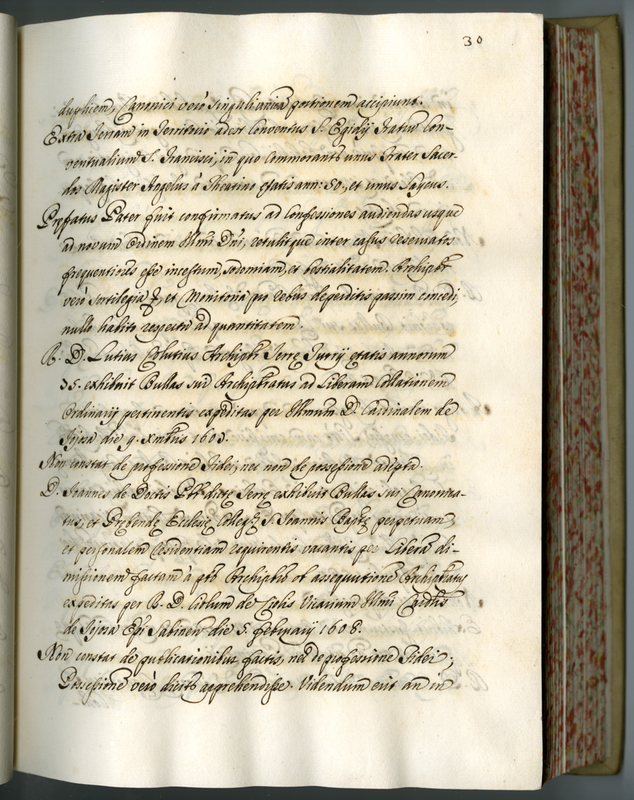 30
duplicem, Canonici verò singuli unicam portionem accipiunt.
Extra Terram in Territorio adest Conventus S. Egidij Fratrum Con-
ventualium S. Francisci, in quo commorantr unus Frater Sacer-
dos Magister Angelus à Theatino ętatis ann: 50, et unus Laycus.
Pręfatus Pater fuit confirmatus ad Confessiones audiendas usque
ad novum ordinem Illmi Dni, retulitque inter casus reservatos
frequentiores esse incestum, sodomiam, et bestialitatem. Archipbr
verò sortilegia et Monitoria pro rebus deperditis passim concedi,
nullo habito respectu ad quantitatem.
R. D. Lutius Archipbr Terrę Turrij ętatis annorum
35. exhibuit Bullas sui Archipbratus ad Liberam Collationem
Ordinarij pertinentis expeditas per Illmum D. Cardinalem de
Jojosa die 9. Xmbris 1603.
Non constat de professione Fidei, nec non de possessione adepta.
D. Joannes de Doctis Pbr dictę Terrę exhibuit Bullas sui Canonica-
tus, et Prębendę Ecclesię Colleg. S. Joannis Baptę perpetuam,
et personalem residentiam requirentis vacantis per Liberā di-
missionem factam à pto Archipbro ob assequutionē Archipbratus
expeditas per R. D. de Ciolis Vicarium Illmi Cardlis
de Jojosa Epi Sabinen die 5. Februarij 1608.
Non constat de publicationibus factis, nec de professione Fidei,
Possessionē verò dicitr apprehendisse. Videndum erit an in